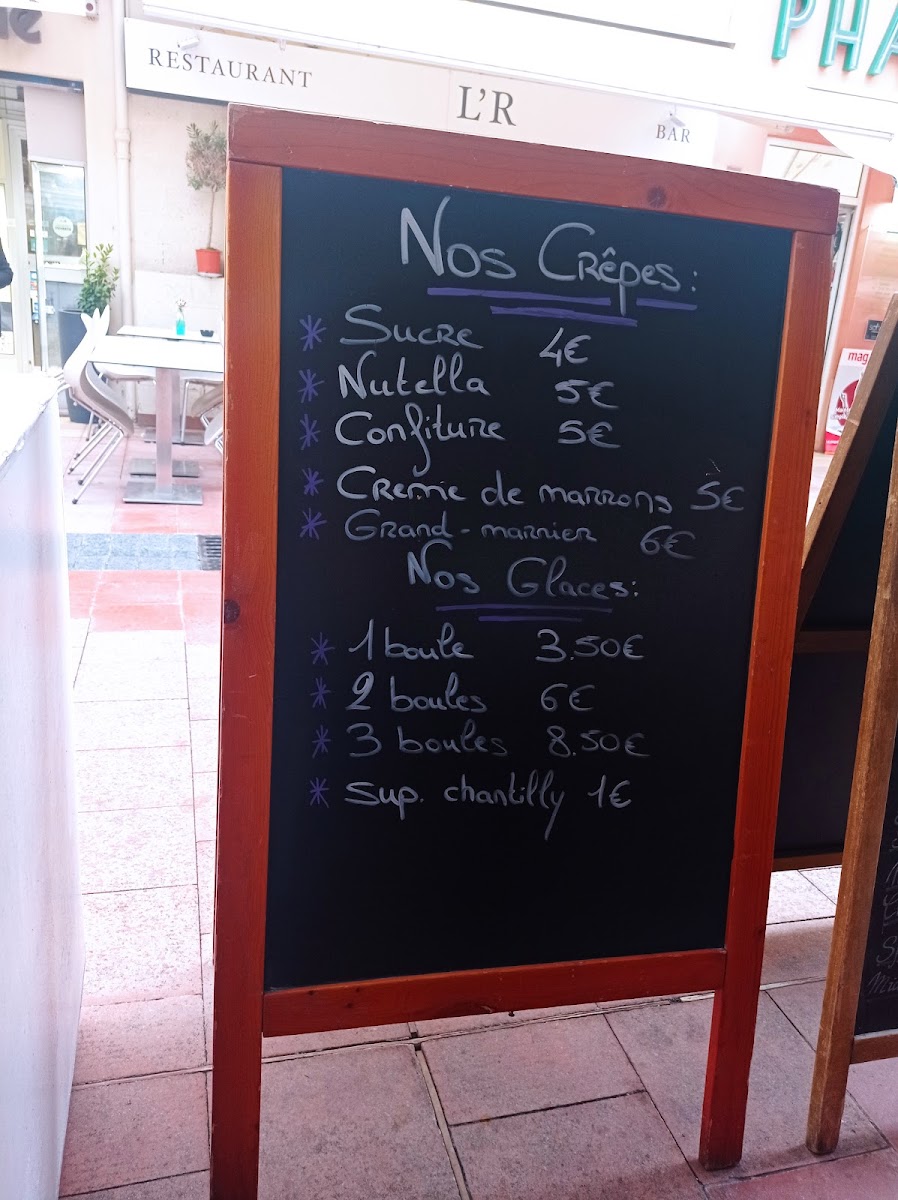 RESTAURANT
L'R
BAR
PHA
Nos Crêpes:
* Sucre 4€
* Nutella 5€
* Confiture 5€
* Creme de marrons 5€
* Grand-marnier 6€
Nos Glaces:
* 1 boule 3.50€
* 2 boules 6€
* 3 boules 8.50€
* sup. chantilly 1€
mag